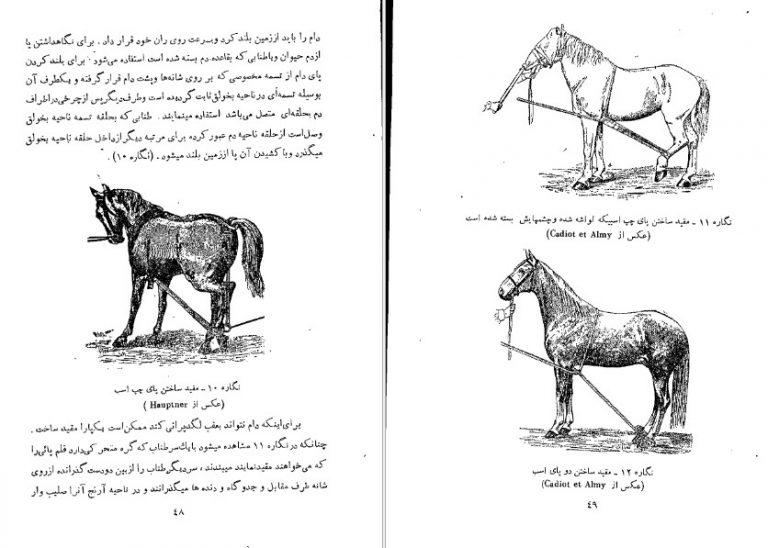 دام را باید اززمین بلند کرد وبسرعت روی ران خود قرار داد . برای نگاهداشتن پا
ازدم حیوان وباطنابی که بقاعده دم بسته شده است استفاده میشود . برای بلند کردن
پای دام از تسمه مخصوصی که بر روی شانه‌ها وپشت دام قرار گرفته و یکطرف آن
بوسیله تسمه‌ای درناحیه بخولق ثابت گردیده است وطرف دیگر پس ازچرخی دراطراف
دم بحلقه‌ای متصل می‌باشد استفاده مینمایند . طنابی که بحلقه تسمه ناحیه بخولق
وصل است ازحلقه ناحیه دم عبور کرده برای مرتبه دیگر ازداخل حلقه ناحیه بخولق
میگذرد وبا کشیدن آن پا اززمین بلند میشود . (نگاره ۱۰) .
نگاره ۱۰ ـ مقید ساختن پای چپ اسب
(عکس از Hauptner )
برای‌اینکه دام نتواند بعقب لگدپرانی کند ممکن‌است یکپارا مقید ساخت .
چنانکه در نگاره ۱۱ مشاهده میشود بایک‌سرطناب که گره متحر کی‌دارد قلم پائی‌را
که می‌خواهند مقیدنمایند میبندند ، سردیگر طناب را ازبین دودست گذرانده ازروی
شانه طرف مقابل و جدوگاه و دنده ها میگذرانند و در ناحیه آرنج آنرا صلیب وار
۴۸
نگاره ۱۱ ـ مقید ساختن پای چپ اسبیکه لواشه شده وچشمهایش بسته شده است
(عکس از Cadiot et Almy)
نگاره ۱۲ ـ مقید ساختن دو پای اسب
(عکس از Cadiot et Almy)
۴۹